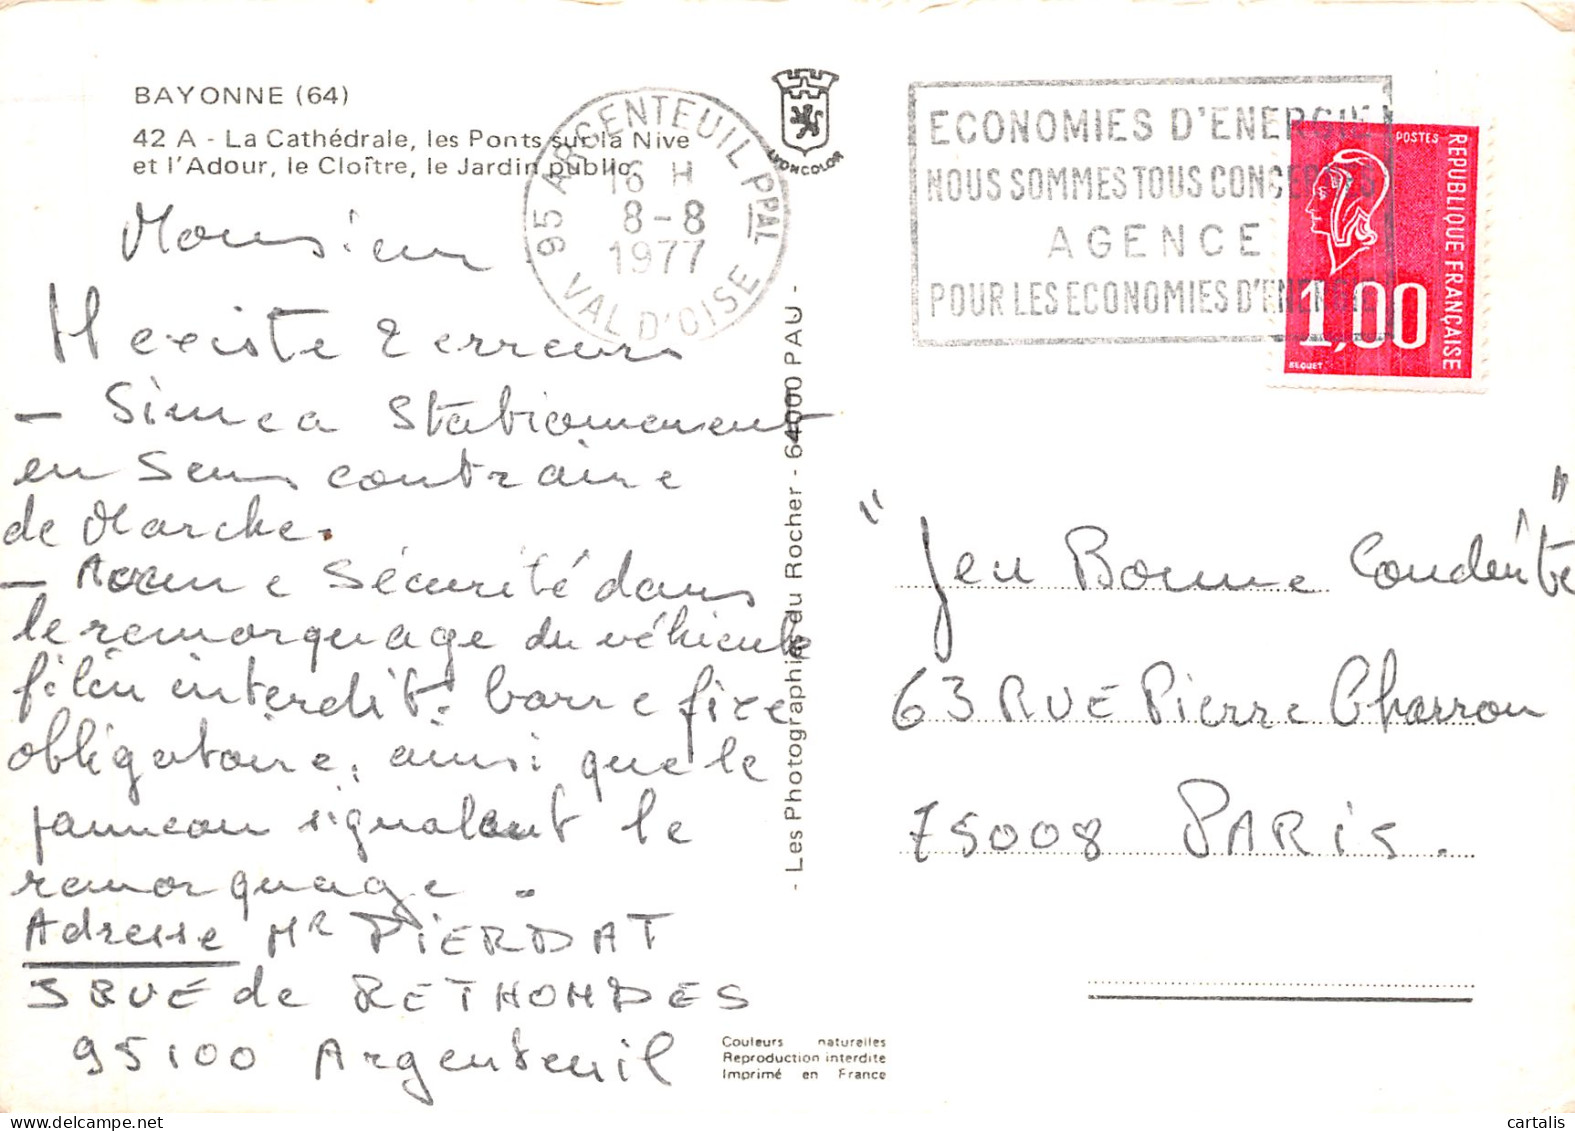 BAYONNE (64)
42 A - La Cathédrale, les Ponts sur la Nive
et l'Adour, le Cloître, le Jardin public
Monsieur
Il existe 2 erreurs
- Simca Stationnement
en Sens contraire
de Marche.
- Aucune Sécurité dans
le remorquage du véhicule
filin interdit. barre fixe
obligatoire, ainsi que le
panneau signalant le
remorquage.
Adresse Mr PIERDAT
3 RUE de RETHONDES
95100 Argenteuil
95 ARGENTEUIL PPAL
16 H
8-8
1977
VAL D'OISE
LYONCOLOR
- Les Photographies du Rocher - 64000 PAU -
Couleurs naturelles
Reproduction interdite
Imprimé en France
ECONOMIES D'ENERGIE
NOUS SOMMES TOUS CONCERNES
AGENCE
POUR LES ECONOMIES D'ENERGIE
POSTES
REPUBLIQUE FRANÇAISE
1,00
BEQUET
"Jeu Bonne Conduite"
63 RUE Pierre Charron
75008 PARIS.
cartalis